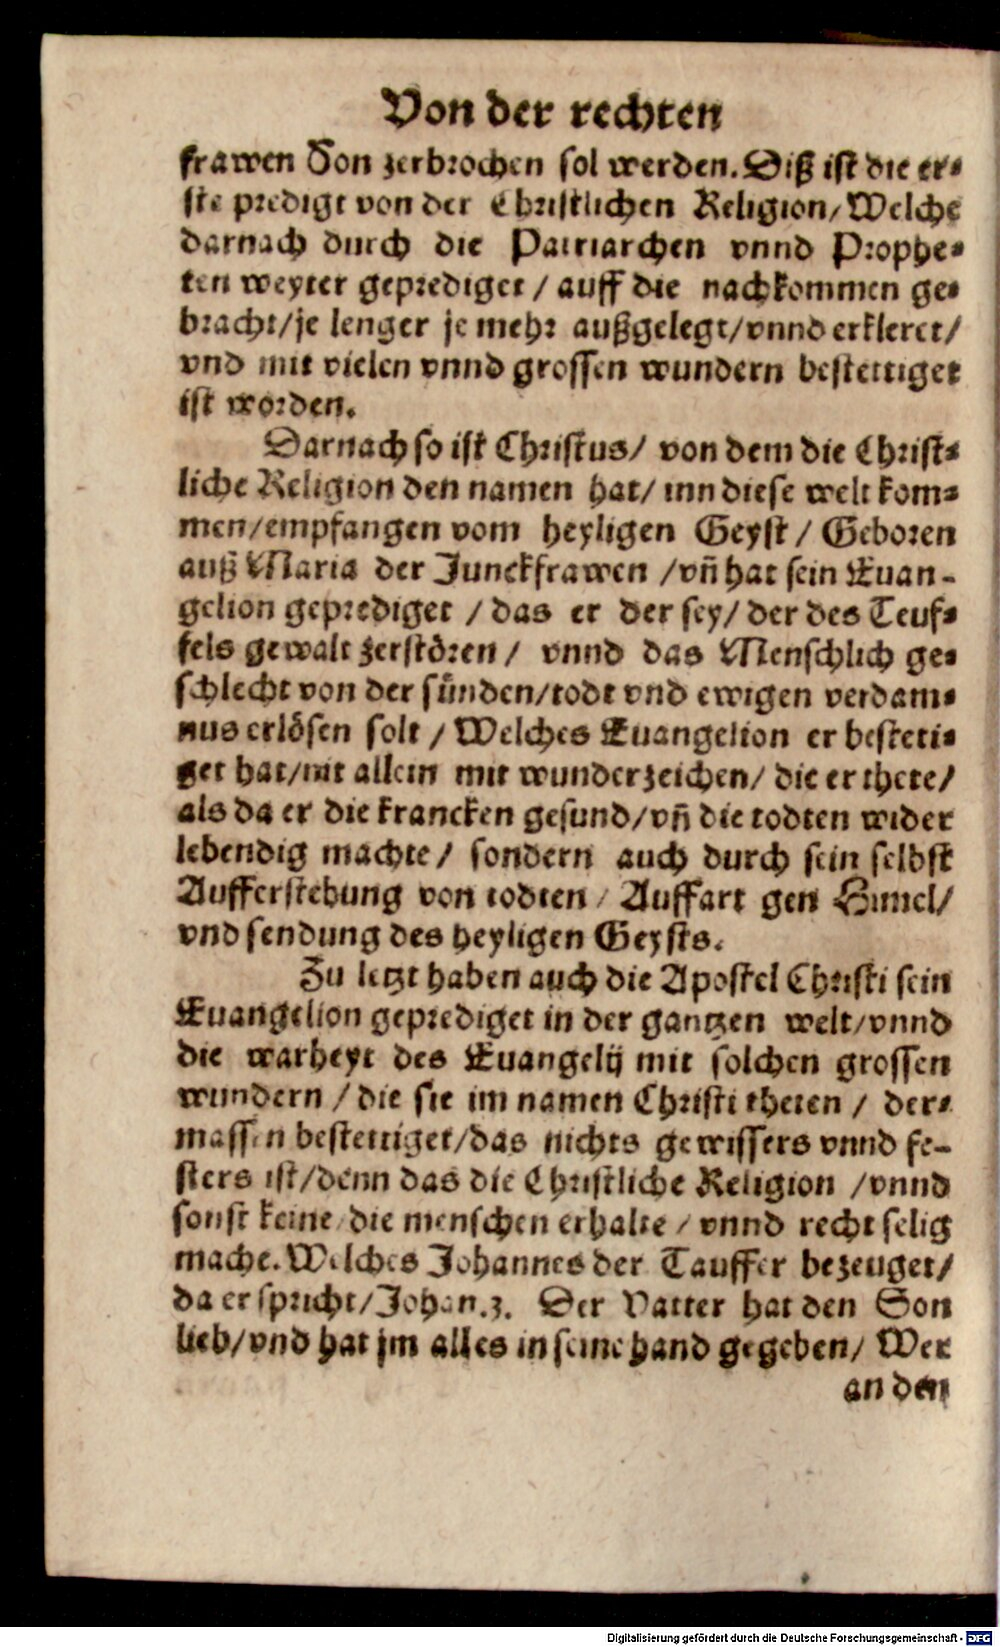 Von der rechten
frawen Son zerbrochen sol werden. Diß ist die er⸗
ste predigt von der Christlichen Religion/ Welche
darnach durch die Patriarchen vnnd Prophe⸗
ten weyter geprediget / auff die nachkommen ge⸗
bracht/ je lenger je mehr außgelegt/ vnnd erkleret/
vnd mit vielen vnnd grossen wundern bestettiget
ist worden.
Darnach so ist Christus/ von dem die Christ⸗
liche Religion den namen hat/ inn diese welt kom⸗
men/ empfangen vom heyligen Geyst / Geboren
auß Maria der Junckfrawen / vn̄ hat sein Euan-
gelion geprediget / das er der sey/ der des Teuf⸗
fels gewalt zerstören / vnnd das Menschlich ge⸗
schlecht von der sünden/ todt vnd ewigen verdam⸗
nus erlösen solt / Welches Euangelion er besteti⸗
get hat/ nit allein mit wunderzeichen/ die er thete/
als da er die krancken gesund/ vn̄ die todten wider
lebendig machte / sondern auch durch sein selbst
Aufferstehung von todten / Auffart gen Himel/
vnd sendung des heyligen Geysts.
Zu letzt haben auch die Apostel Christi sein
Euangelion geprediget in der gantzen welt/ vnnd
die warheyt des Euangelij mit solchen grossen
wundern / die sie im namen Christi theten / der⸗
massen bestettiget/ das nichts gewissers vnnd fe-
sters ist/ denn das die Christliche Religion / vnnd
sonst keine/ die menschen erhalte / vnnd recht selig
mache. Welches Johannes der Tauffer bezeuget/
da er spricht/ Johan. 3. Der Vatter hat den Son
lieb/ vnd hat jm alles in seine hand gegeben/ Wer
an den
Digitalisierung gefördert durch die Deutsche Forschungsgemeinschaft - DFG